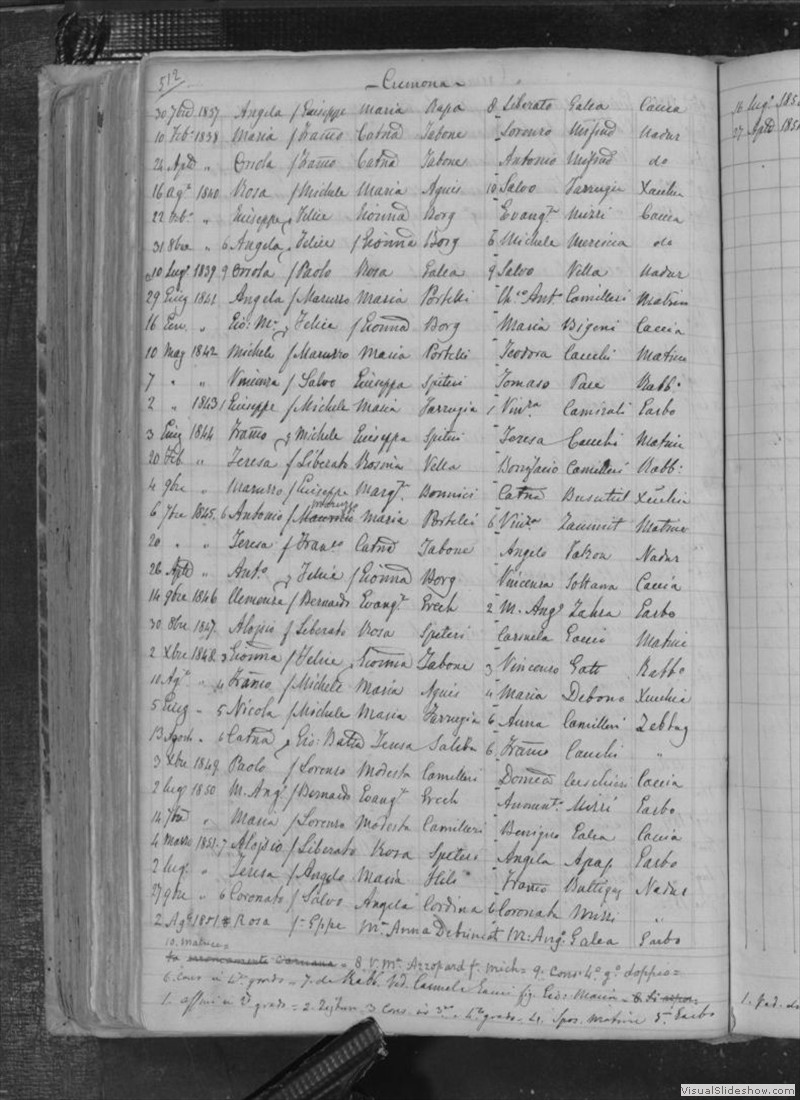 512 Cremona
30 7bre 1837 Angela f Giuseppe Maria Rapa 8 Liberato Galea Caccia
10 Feb. 1838 Maria f Franco Catna Tabone Lorenzo Mifsud Nadur
24 Aple " Orsola f Franco Catna Tabone Antonio Mifsud do
16 Agto 1840 Rosa f Michele Maria Agius 10 Salvo Farrugia Xeuchia
22 " Giuseppe Felice Gionna Borg Evangta Mizzi Caccia
31 8bre " 6 Angela Felice f Gionna Borg 6 Michele Mercieca do
10 Lug. 1839 9 Orsola f Paolo Rosa Galea 9 Salvo Vella Nadur
29 Giug 1841 Angela f Maruzzo Maria Portelli Camilleri Matrice
16 Gen. " Gio: Ma Felice f Gionna Borg Maria Bigeni Caccia
10 Mag 1842 Michele f Maruzzo Maria Portelli Teodora Cauchi Matrice
7 " " Vincenza f Salvo Giuseppa Spiteri Tomaso Pace Rabbo
2 " 1843 1 Giuseppe f Michele Maria Farrugia 1 Vinza Garbo
3 Giug 1844 Franco Michele Giuseppa Spiteri Teresa Cauchi Matrice
20 Feb. " Teresa f Liberato Rosina Vella Bonifacio Camilleri Rabb:
4 9bre " Maruzzo f Giuseppe Margta Bonnici Catna Busuttil Xeuchia
Maruzzo
6 7bre 1845 6 Antonio f Maria Portelli 6 Vinza Zammit Matrice
20 " " Teresa f Franco Catna Tabone Angelo Nadur
26 Aple " Anto Felice f Gionna Borg Vincenza Sultana Caccia
14 9bre 1846 Clemenza f Bernardo Evangta Grech 2 M. Ango Zahra Garbo
30 8bre 1847. Aloisio f Liberato Rosa Spiteri Carmela Gauci Matrice
2 Xbre 1848 3 Gionna f Felice Gionna Tabone 3 Vincenzo Gatt Rabbo
11 Ago " 4 Franco f Michele Maria Agius 4 Maria Debono Xeuchia
5 Giug " 5 Nicola f Michele Maria Farrugia 6 Anna Camilleri Zebbug
13 Agosto " 6 Catna Gio: Batta Teresa Saliba 6 Franco Cauchi "
3 Xbre 1849 Paolo f Lorenzo Modesta Camilleri Domca Caccia
2 Lugo 1850 M. Anga f Bernardo Evangta Grech Annunta Mizzi Garbo
14 7bre " Maria f Lorenzo Modesta Camilleri Benigno Galea Caccia
4 Marzo 1851 7 Aloisio f Liberato Rosa Spiteri Angela Apap Garbo
2 Lugo " Teresa f Angelo Maria Hili Franco Buttigieg Nadur
27 9bre " 6 Coronato f Salvo Angela Cordina 6 Coronata Mizzi "
2 Ago 1851 8 Rosa f Eppe Ma Anna Debrincat M: Ango Galea Garbo
10. Matrice =
erroneamente = 8. V. Ma Azzopardi f. Mich = 9. Cons: 4o go doppio =
6. Cons in 4to grado = 7. da Rabb. Vd. Carmela Gauci fig. Gio: Maria =
1. affini in 2do grado = 2. Zejtun 3. Cons. in 3zo e 4to grado = 4. Spos. Matrice 5. Garbo
16 Lugo 185
27 Aple 185
1. Ved. da
VisualSlideshow.com